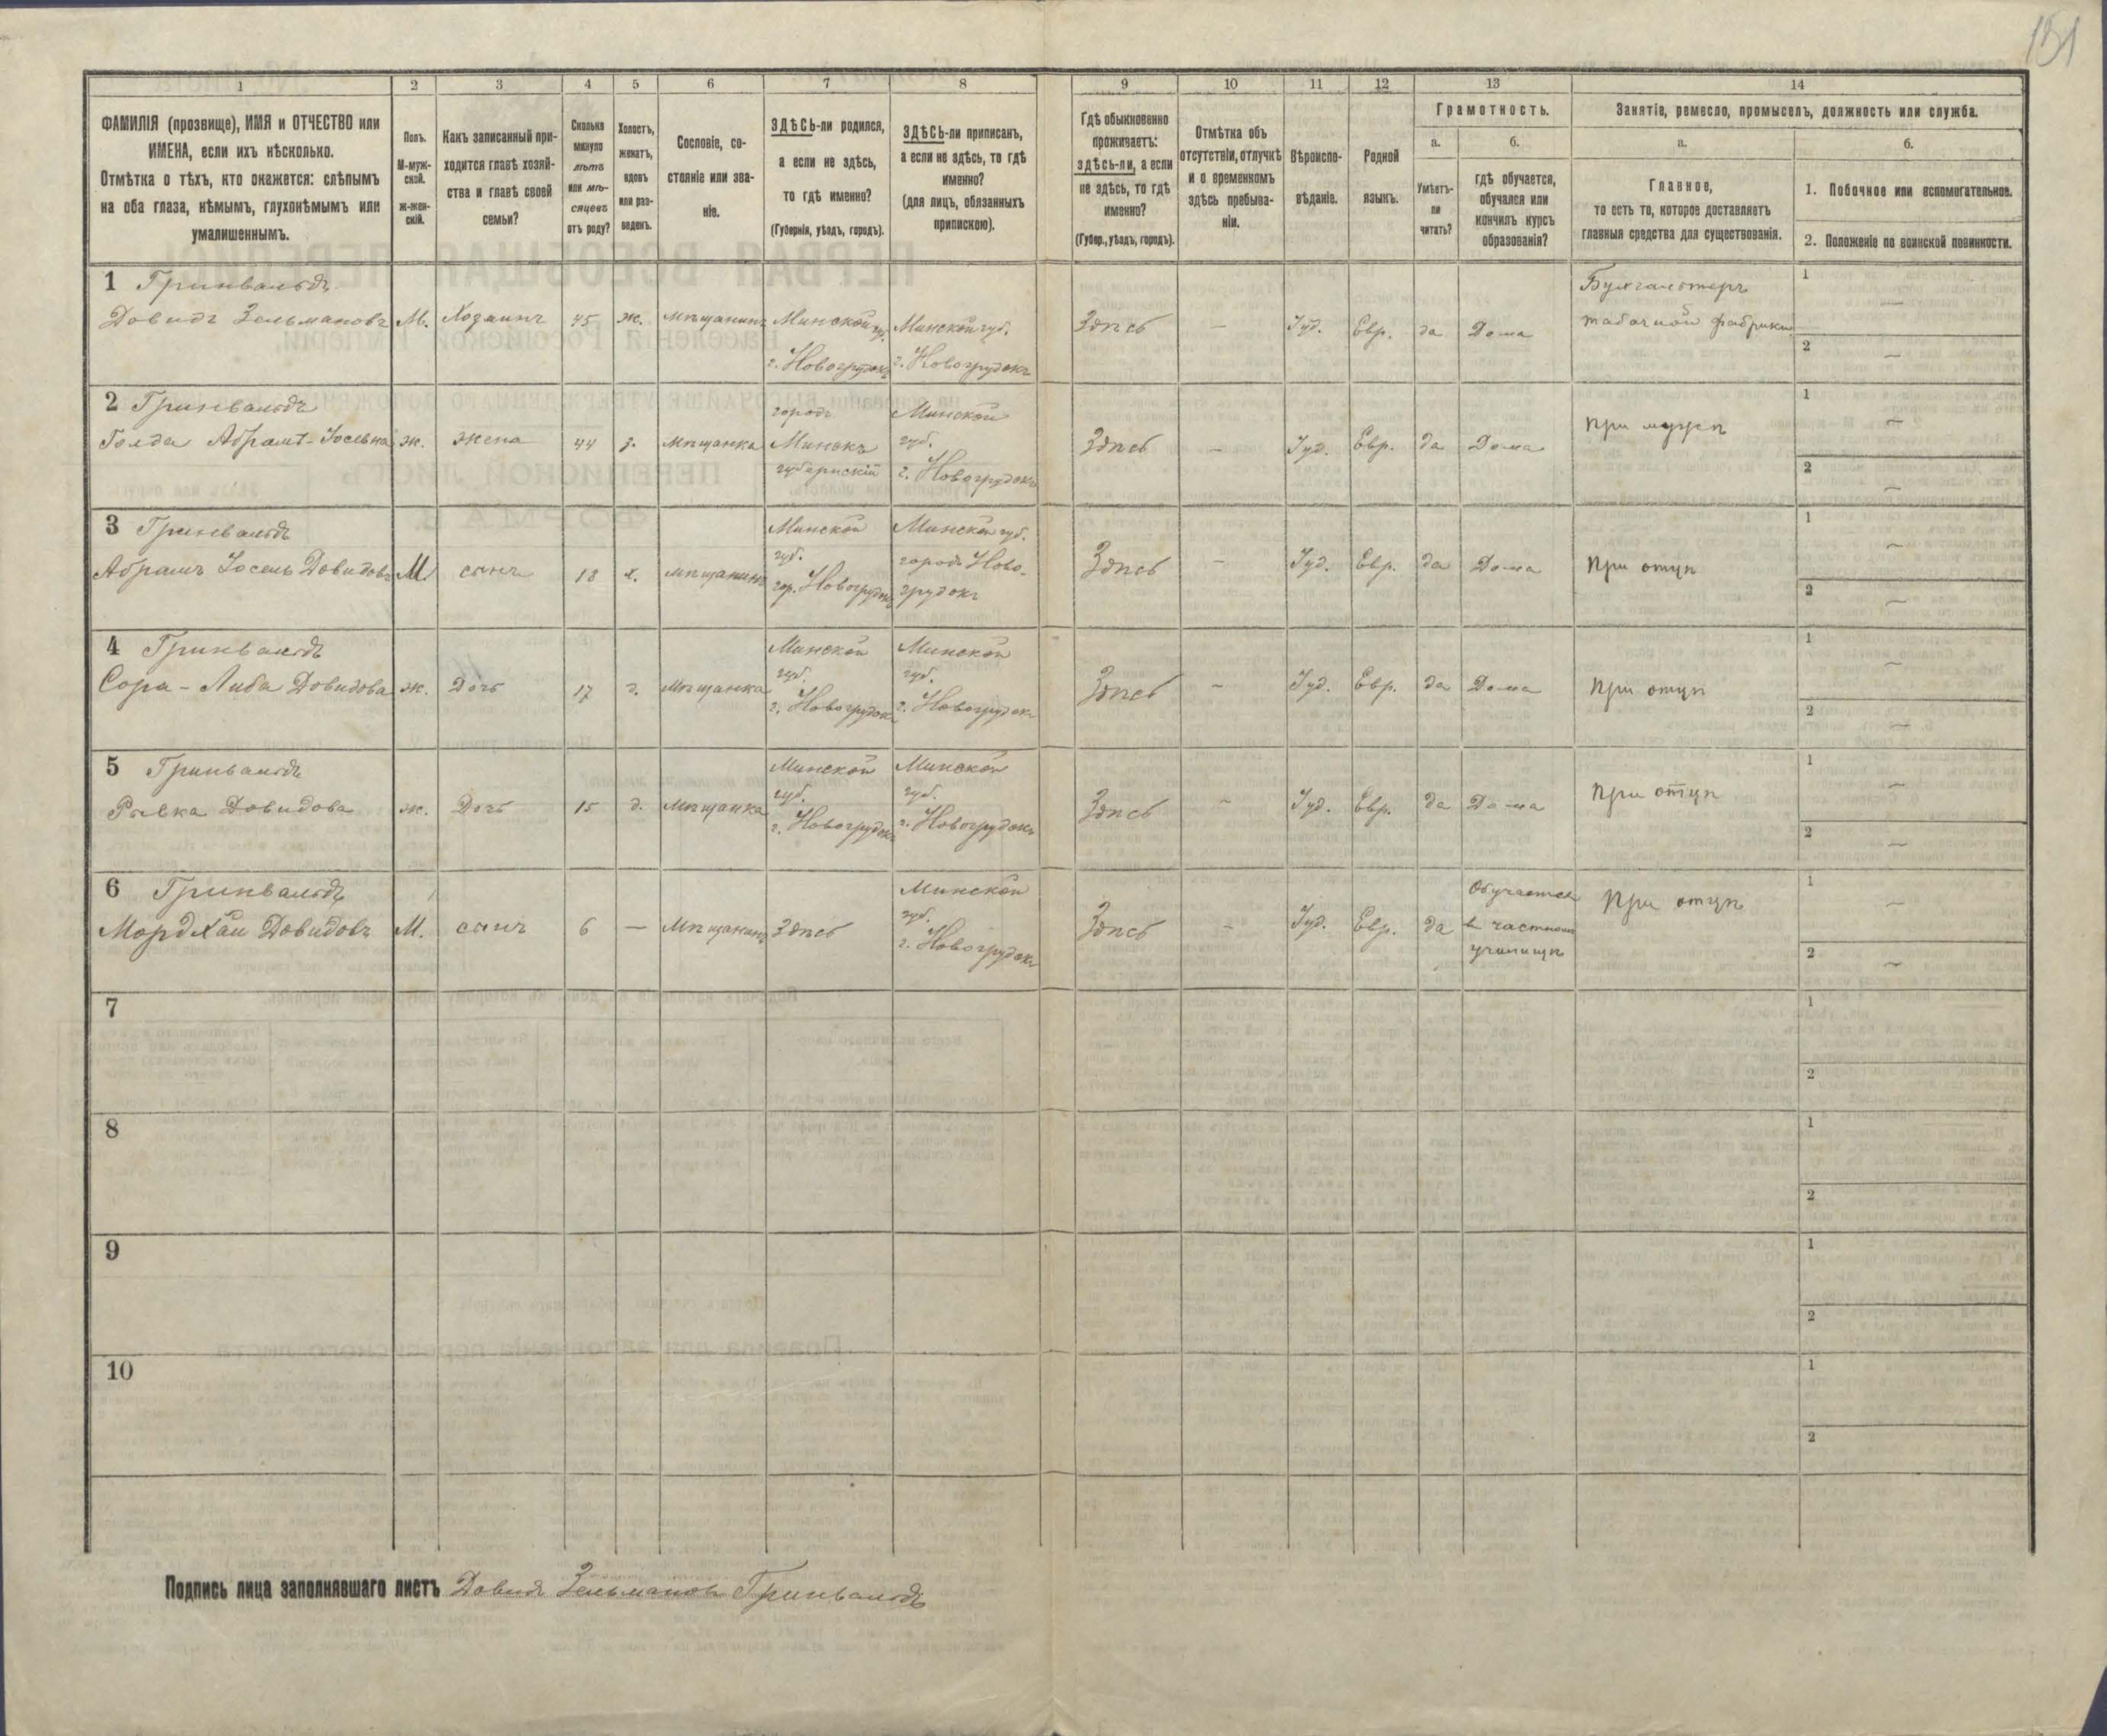 151
1
2
3
4
5
6
7
8
9
10
11
12
13
14
ФАМИЛІЯ (прозвище), ИМЯ и ОТЧЕСТВО или
ИМЕНА, если ихъ нѣсколько.
Отмѣтка о тѣхъ, кто окажется: слѣпымъ
на оба глаза, нѣмымъ, глухонѣмымъ или
умалишеннымъ.
Полъ.
М-муж-
ской.
ж-жен-
скій.
Какъ записанный при-
ходится главѣ хозяй-
ства и главѣ своей
семьи?
Сколько
минуло
лѣтъ
или мѣ-
сяцевъ
отъ роду?
Холостъ,
женатъ,
вдовъ
или раз-
веденъ.
Сословіе, со-
стояніе или зва-
ніе.
ЗДѢСЬ-ли родился,
а если не здѣсь,
то гдѣ именно?
(Губернія, уѣздъ, городъ).
ЗДѢСЬ-ли приписанъ,
а если не здѣсь, то гдѣ
именно?
(для лицъ, обязанныхъ
припискою).
Гдѣ обыкновенно
проживаетъ:
здѣсь-ли, а если
не здѣсь, то гдѣ
именно?
(Губер., уѣздъ, городъ).
Отмѣтка объ
отсутствіи, отлучкѣ
и о временномъ
здѣсь пребыва-
ніи.
Вѣроиспо-
вѣданіе.
Родной
языкъ.
Грамотность.
а.
Умѣетъ-
ли
читать?
б.
гдѣ обучается,
обучался или
кончилъ курсъ
образованія?
Занятіе, ремесло, промыселъ, должность или служба.
а.
Главное,
то есть то, которое доставляетъ
главныя средства для существованія.
б.
1. Побочное или вспомогательное.
2. Положеніе по воинской повинности.
1 Гринвальдъ
Довидъ Зельмановъ М. Хозяинъ 45 ж. мѣщанинъ Минской гу. г. Новогрудокъ Минской губ. г. Новогрудокъ Здѣсь — Іуд. Евр. да Дома Бухгалтеръ табачной фабрики 1 — 2 —
2 Гринвальдъ
Голда Абрамъ-Іосевна ж. жена 44 з. мѣщанка городъ Минскъ губернскій Минской губ. г. Новогрудокъ Здѣсь — Іуд. Евр. да Дома При мужѣ 1 — 2 —
3 Гринвальдъ
Абрамъ Іосель Довидовъ М. сынъ 18 х. мѣщанинъ Минской губ. гор. Новогрудокъ Минской губ. городъ Ново-грудокъ Здѣсь — Іуд. Евр. да Дома При отцѣ 1 — 2 —
4 Гринвальдъ
Сора-Либа Довидова ж. Дочь 17 д. Мѣщанка Минской губ. г. Новогрудокъ Минской губ. г. Новогрудокъ Здѣсь — Іуд. Евр. да Дома При отцѣ 1 — 2 —
5 Гринвальдъ
Рывка Довидова ж. Дочь 15 д. Мѣщанка Минской губ. г. Новогрудокъ Минской губ. г. Новогрудокъ Здѣсь — Іуд. Евр. да Дома При отцѣ 1 — 2 —
6 Гринвальдъ
Мордхай Довидовъ М. сынъ 6 — Мѣщанинъ Здѣсь Минской губ. г. Новогрудокъ Здѣсь — Іуд. Евр. да Обучается в частном училищѣ При отцѣ 1 — 2 —
7 1 2
8 1 2
9 1 2
10 1 2
Подпись лица заполнявшаго листъ Довид Зельманов Гринвальдъ